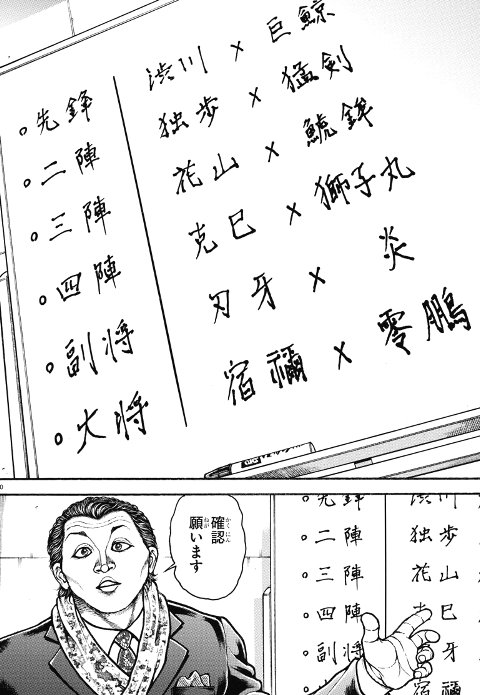 ○先鋒 渋川×巨鯨
○二陣 独歩×猛剣
○三陣 花山×鯱鉾
○四陣 克巳×獅子丸
○副将 刃牙×炎
○大将 宿禰×零鵬
確認
願います
先鋒 渋川
○二陣 独歩
○三陣 花山
○四陣 巳
○副将 牙
宿禰